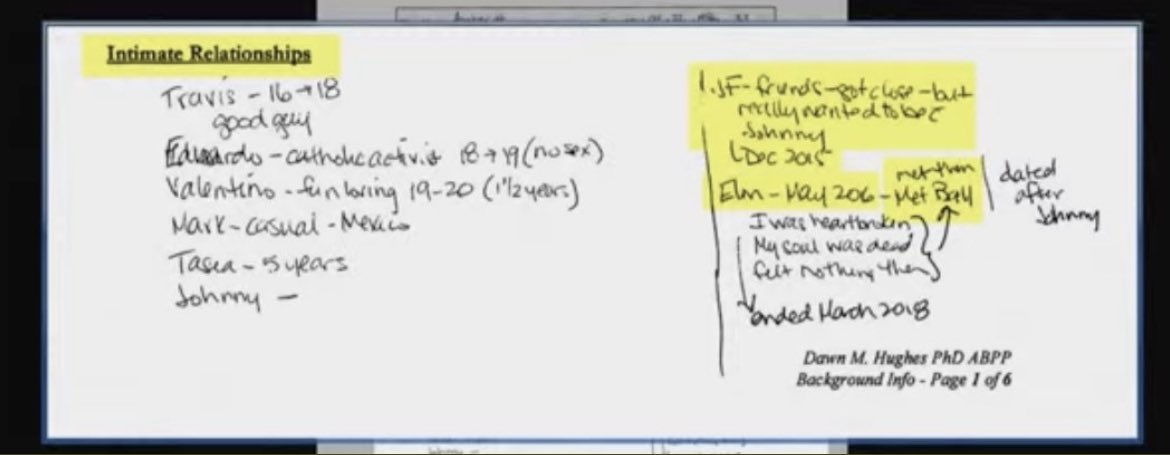 Intimate Relationships
Travis - 16→18
good guy
Eduardo - catholic activist 18→19 (no sex)
Valentino - fun loving 19-20 (1 1/2 years)
Mark - casual - Mexico
Tasia - 5 years
Johnny -
1. JF - friends - got close - but
really wanted to be c
Johnny
Dec 2015
Elon - May 206 - met than Met Ball
I was heartbroken
My soul was dead
felt nothing then
ended March 2018
dated
after
Johnny
Dawn M. Hughes PhD ABPP
Background Info - Page 1 of 6